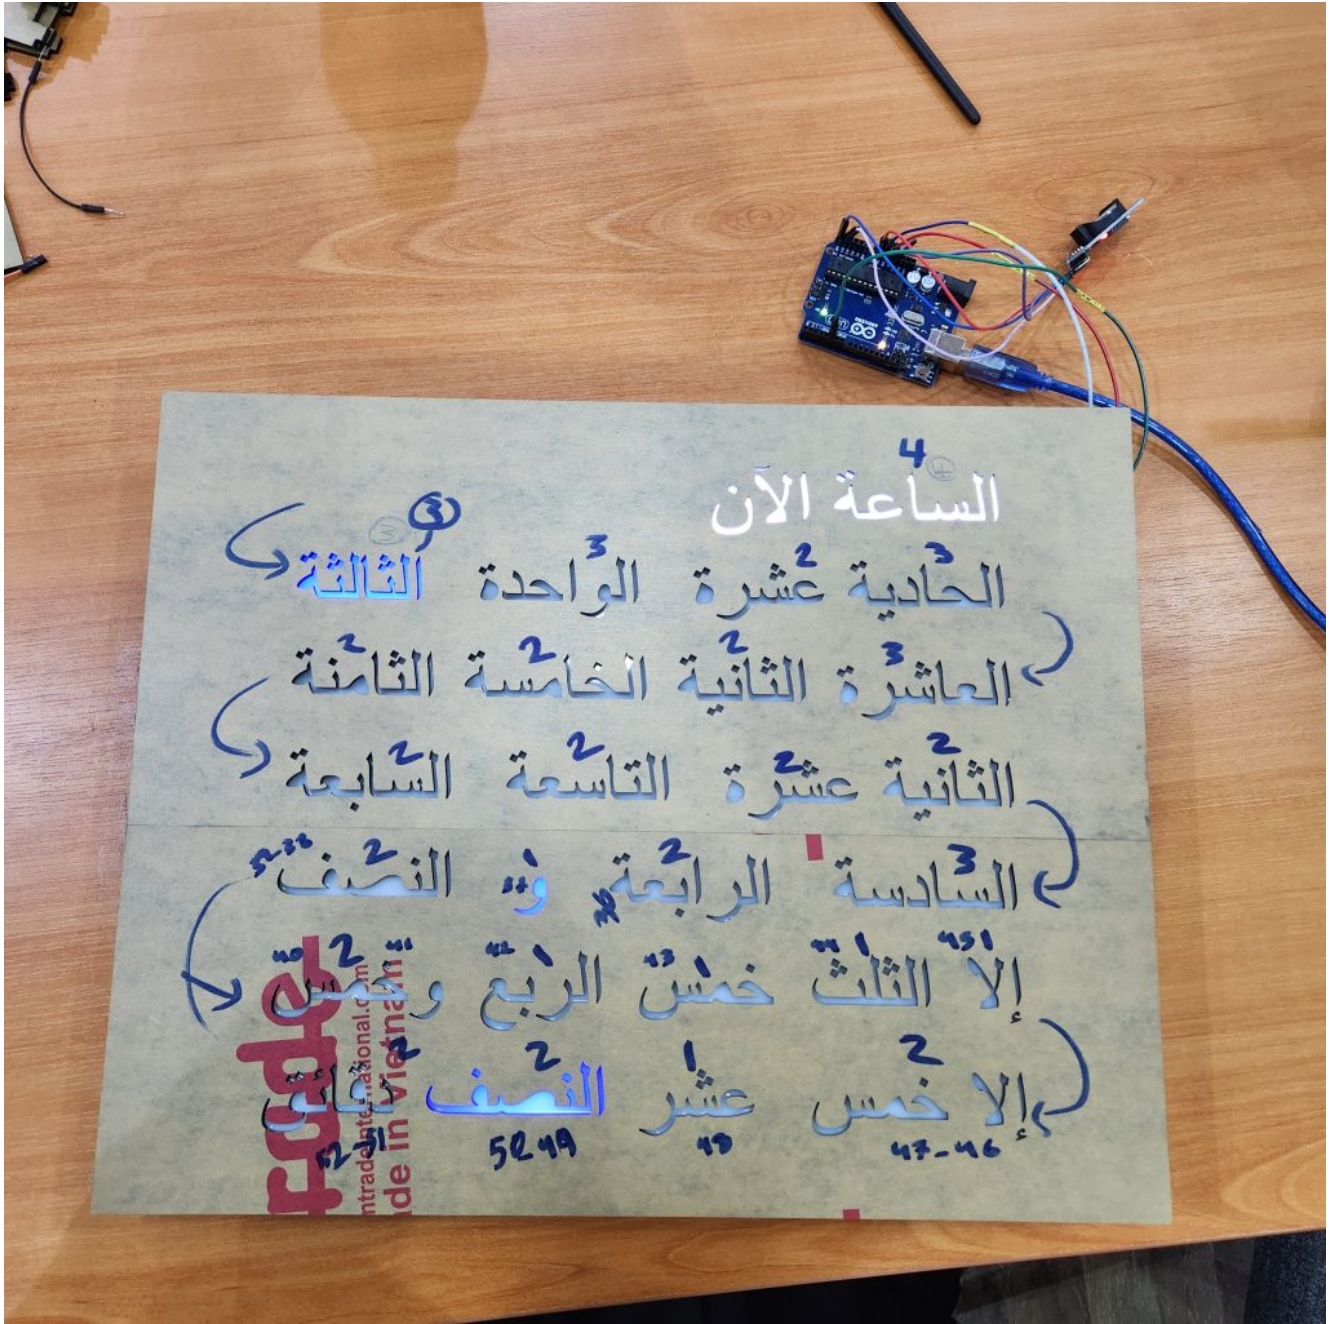 4
الساعة الآن
3 2 3 3
الحادية عشرة الواحدة الثالثة
3 2 2 2
العاشرة الثانية الخامسة الثامنة
2 2 2 2
الثانية عشرة التاسعة السابعة
3 2 1 2
السادسة الرابعة و النصف
36 37 52-38
451 44 1 43 1 42 1 41 2 40
إلا الثلث خمس الربع وخمس
2 1 2 2
إلا خمس عشر النصف دقائق
47-46 48 52 49
ntradeinternational.com
de in vietnam
ARDUINO